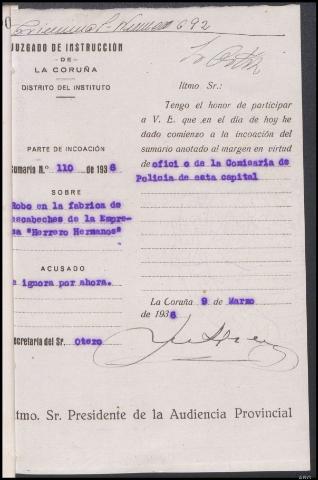 692
JUZGADO DE INSTRUCCIÓN
- DE -
LA CORUÑA
DISTRITO DEL INSTITUTO
PARTE DE INCOACIÓN
Sumario N.º 110 de 1936
SOBRE
Robo en la fabrica de
escabeches de la Empre-
sa "Herrero Hermanos"
ACUSADO
e ignora por ahora.
Secretaría del Sr. Otero
Iltmo Sr.:
Tengo el honor de participar
a V. E. que en el día de hoy he
dado comienzo a la incoación del
sumario anotado al margen en virtud
de ofici o de la Comisaria de
Policia de esta capital
La Coruña 9 de Marzo
de 1936
ltmo. Sr. Presidente de la Audiencia Provincial